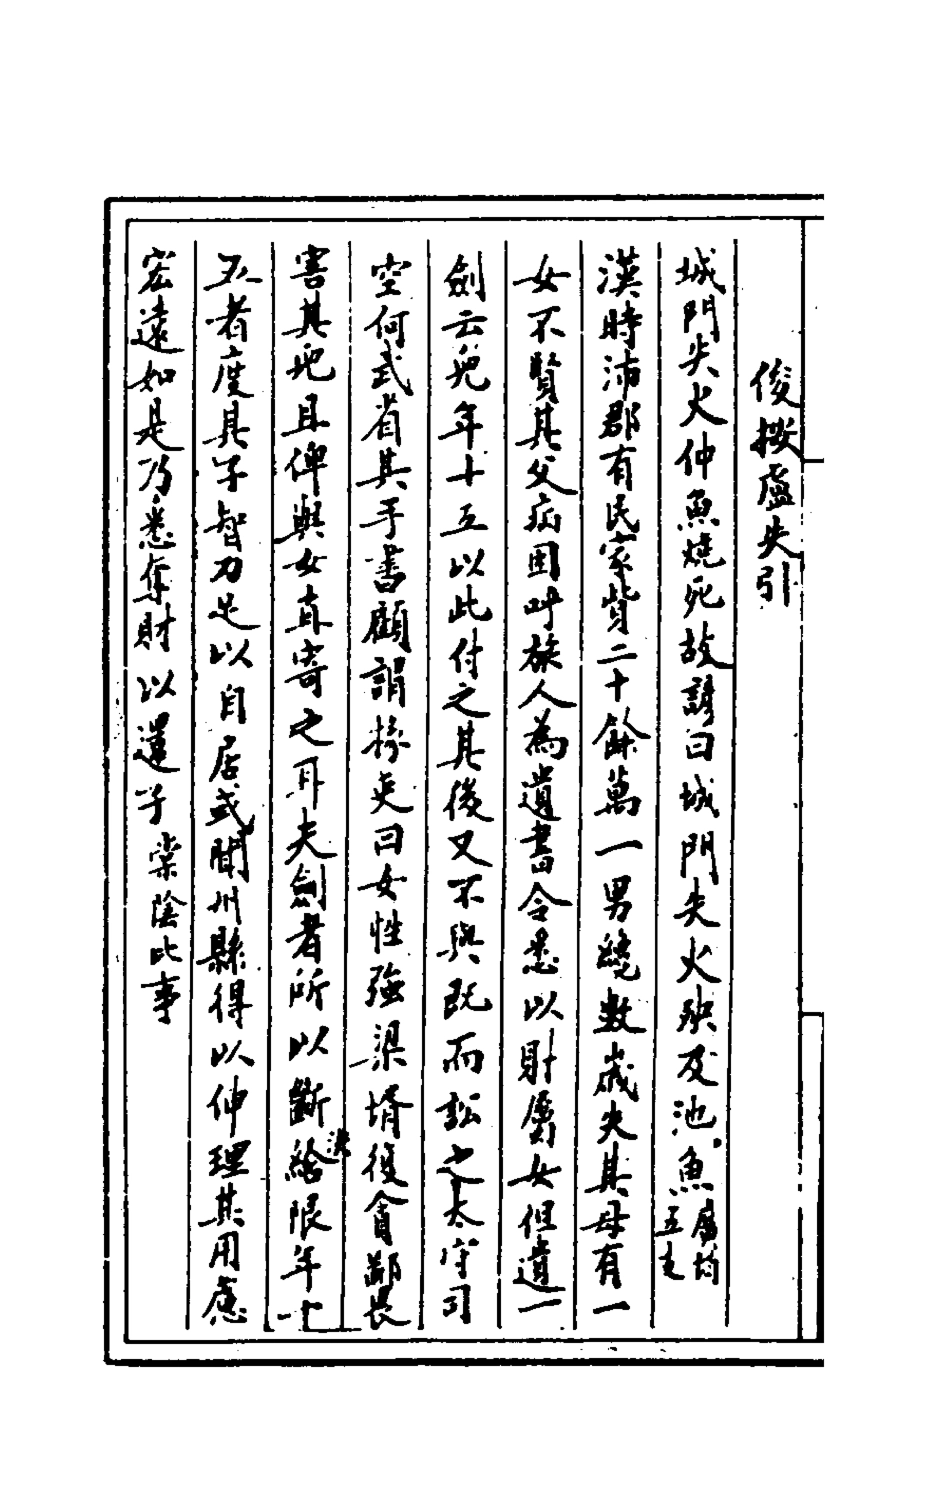 俊按處失引
城門失火仲魚燒死故諺曰城門失火殃及池魚廣韵五支
漢時沛郡有民家貲二十餘萬一男纔數歲失其母有一
女不賢其父病困呼族人為遺書令悉以財屬女但遺一
劍云兒年十五以此付之其後又不與既而訟之太守司
空何武省其手書顧謂掾吏曰女性強梁壻復貪鄙畏
害其兒且俾與女直寄之耳夫劍者所以斷給决限年十
五者度其子智力足以自居或聞州縣得以伸理其用慮
宏遠如是乃悉奪財以還子棠陰比事